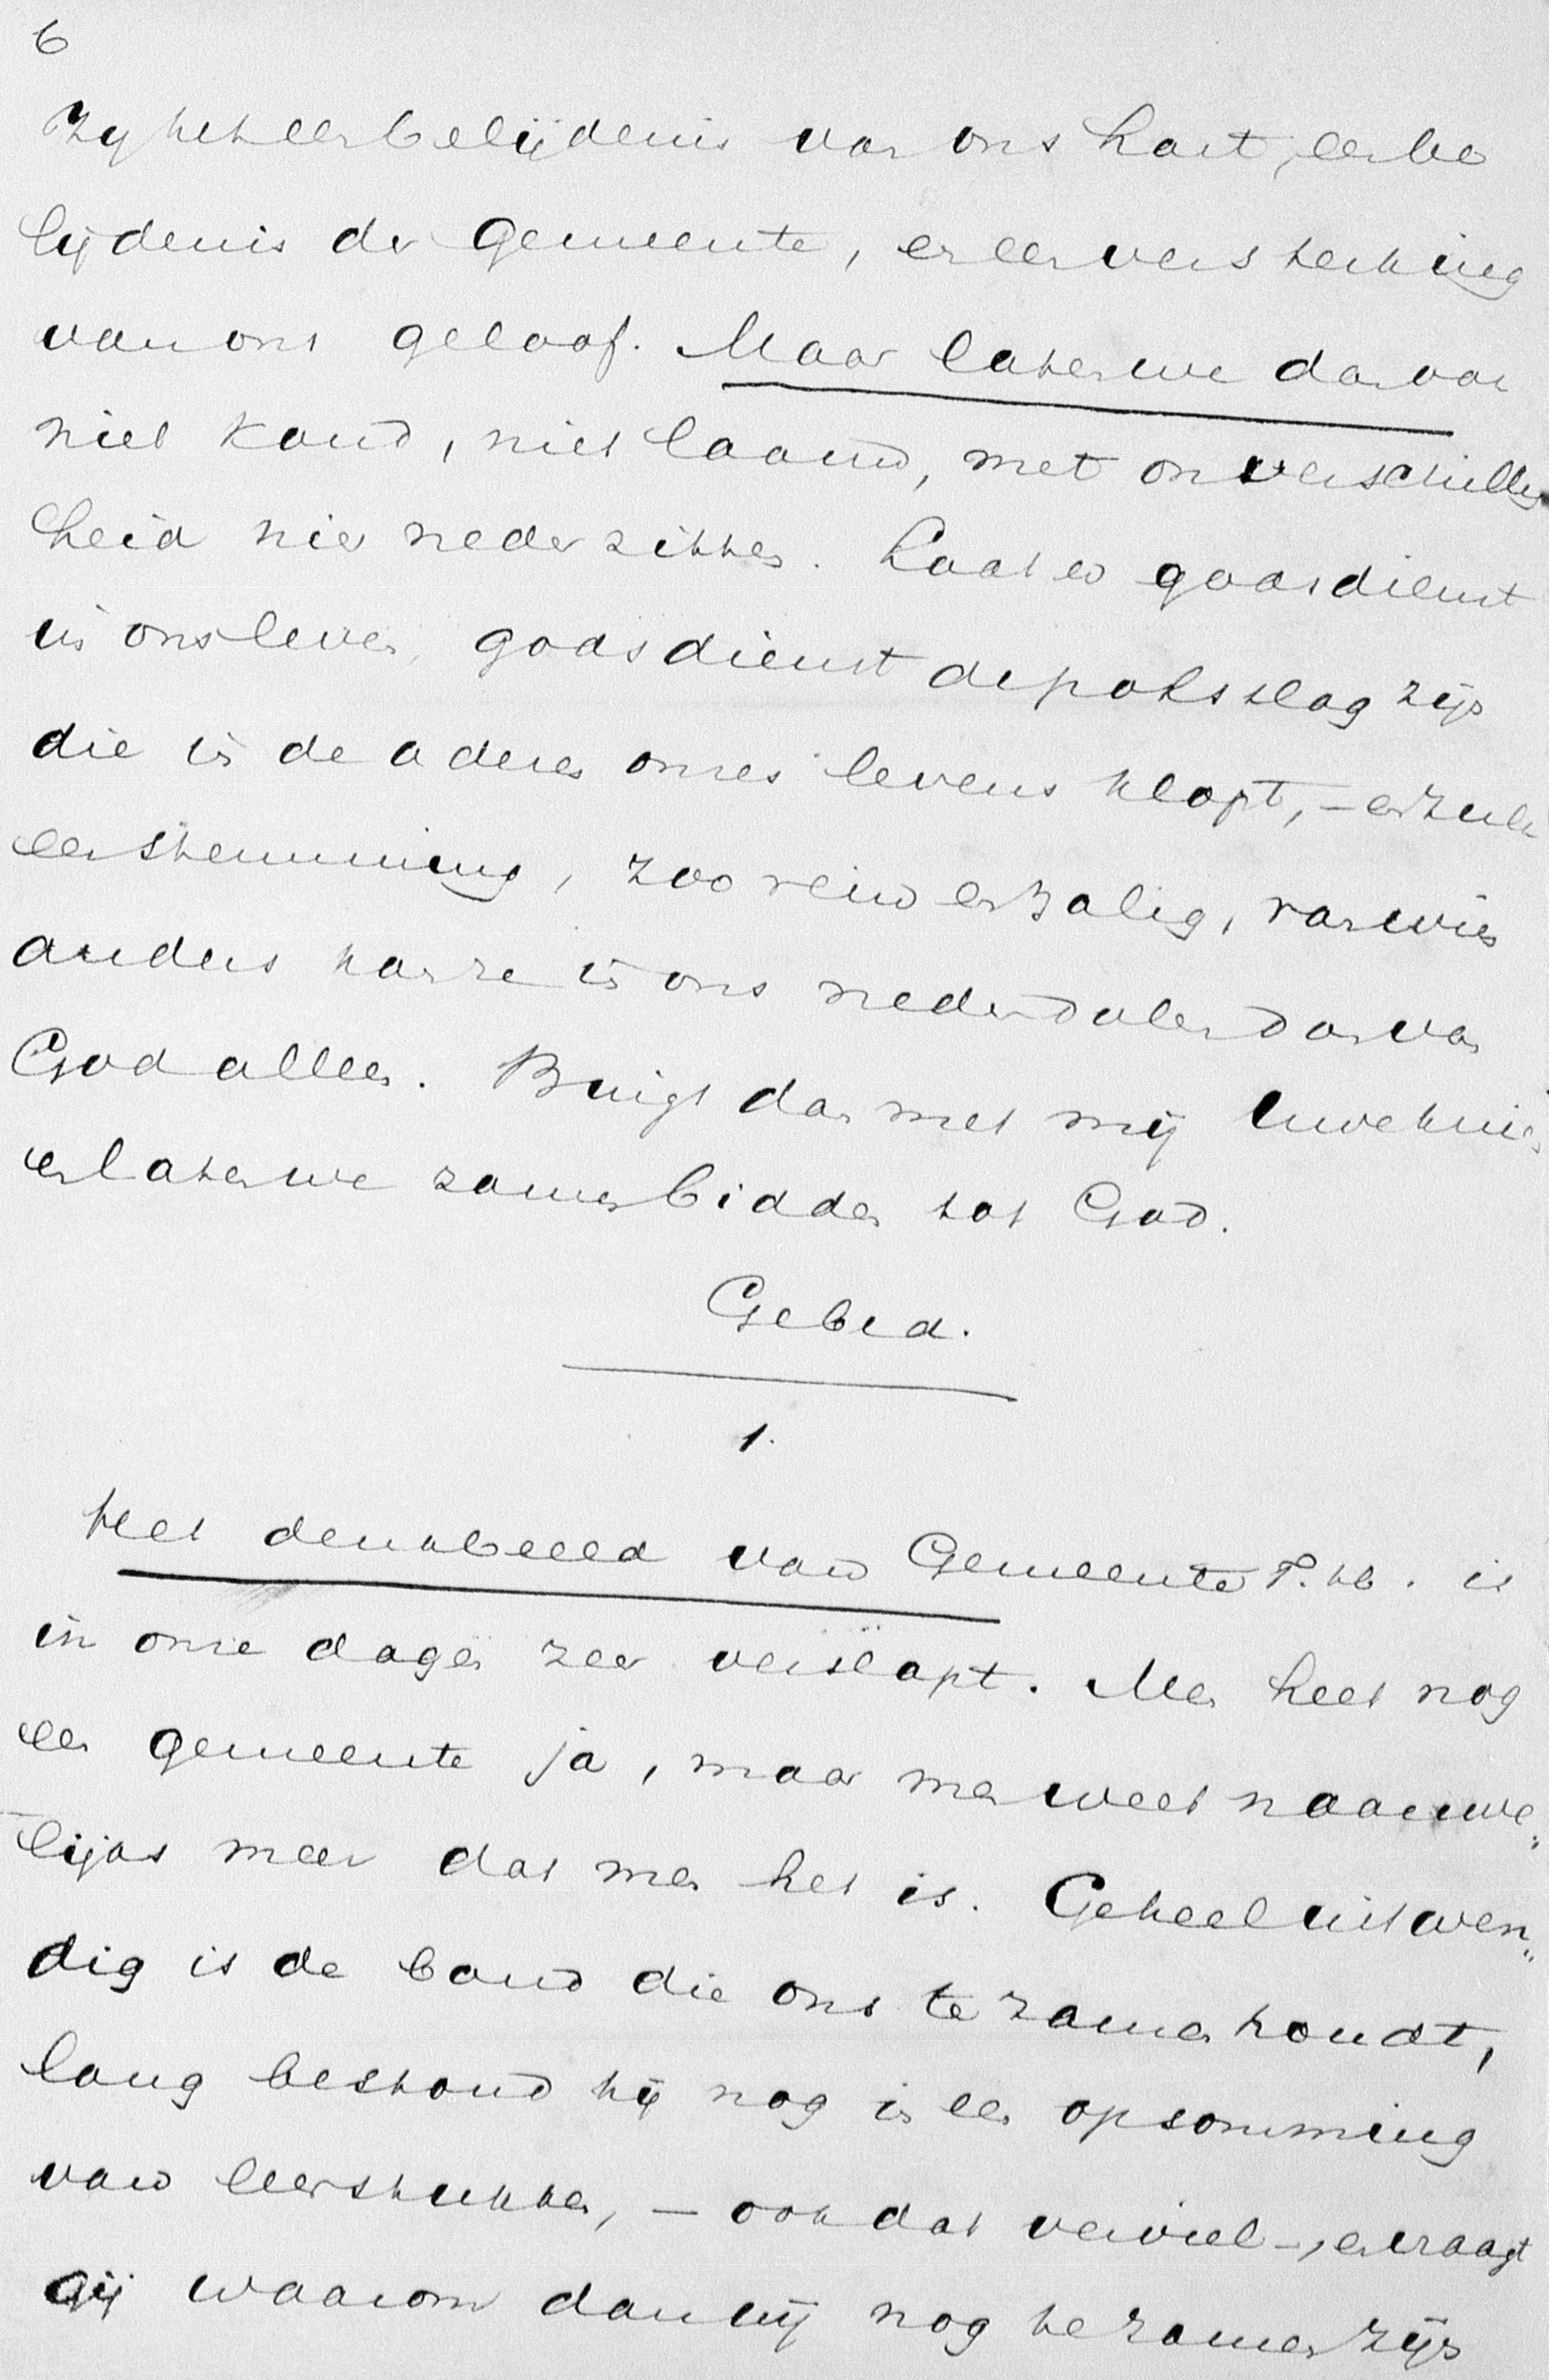 6
Zij het een belijdenis van ons hart, een be
lijdenis der Gemeente, en een versterking
van ons geloof. Maar laten we dan ook
niet koud, niet laauw, met onverschillig
heid hier nederzitten. Laat en godsdienst
in ons leven, godsdienst de polsslag zijn
die in de aderen onzes levens klopt, – en zulk
een stemming, zoo rein en zalig, van wien
anders kan ze in ons nederdalen dan van
God alleen. Buigt dan met mij uwe knieën
en laten we zamen bidden tot God.
Gebed.
1.
Het denkbeeld van Gemeente T. h. is
in onze dagen zeer verslapt. Men heet nog
een gemeente ja, maar men weet naauwe„
lijks meer dat men het is. Geheel uitwen„
dig is de band die ons te zamen houdt,
lang bestond hij nog in een opsomming
van leerstukken, – ook dat verviel –, en vraagt
gij waarom dan wij nog te zamen zijn